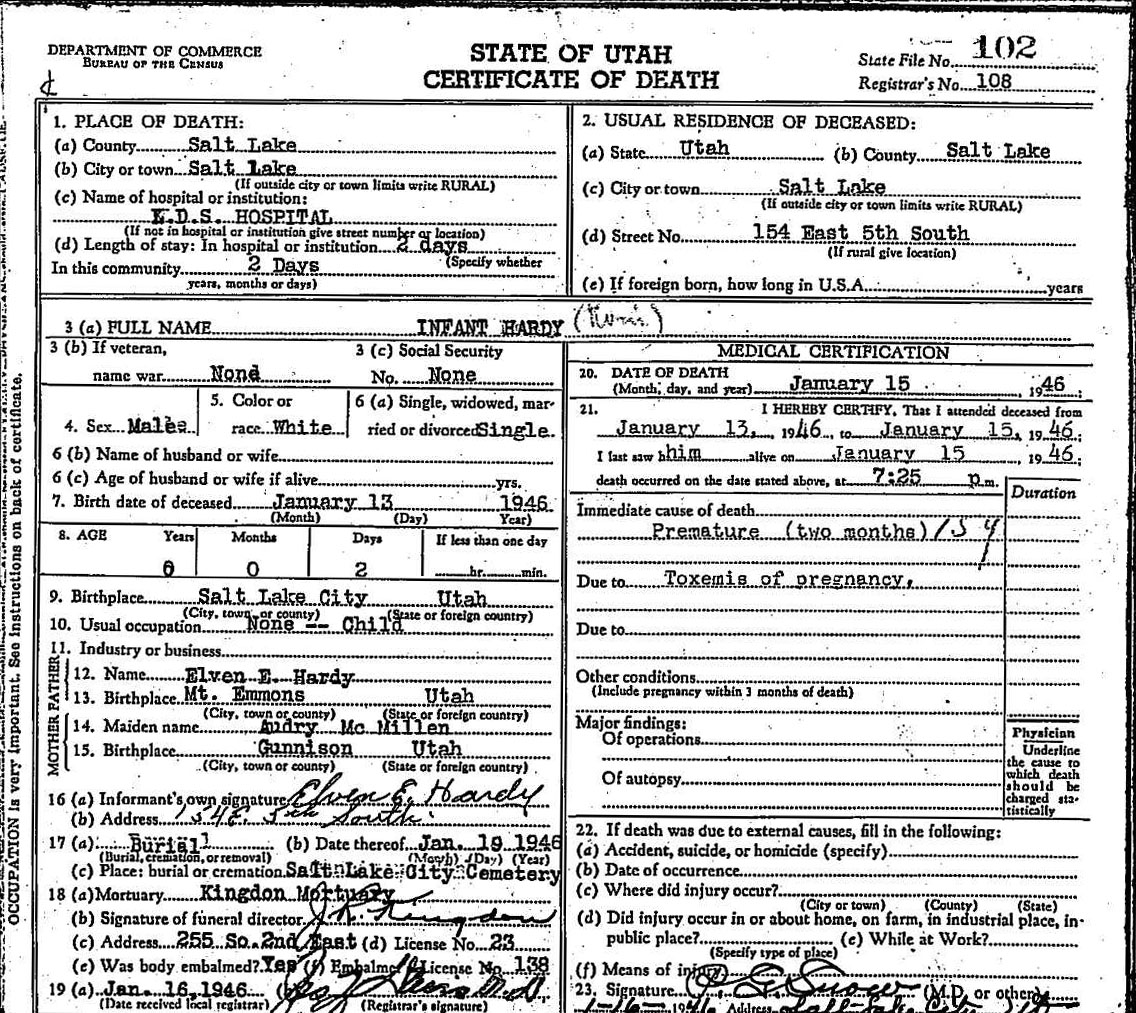 DEPARTMENT OF COMMERCE
BUREAU OF THE CENSUS
STATE OF UTAH
CERTIFICATE OF DEATH
State File No. 102
Registrar's No. 108
1. PLACE OF DEATH:
(a) County Salt Lake
(b) City or town Salt Lake
(If outside city or town limits write RURAL)
(c) Name of hospital or institution:
L.D.S. HOSPITAL
(If not in hospital or institution give street number or location)
(d) Length of stay: In hospital or institution 2 days
(Specify whether
In this community 2 Days
years, months or days)
2. USUAL RESIDENCE OF DECEASED:
(a) State Utah (b) County Salt Lake
(c) City or town Salt Lake
(If outside city or town limits write RURAL)
(d) Street No. 154 East 5th South
(If rural give location)
(e) If foreign born, how long in U.S.A. years
3 (a) FULL NAME INFANT HARDY
3 (b) If veteran,
name war None
3 (c) Social Security
No. None
4. Sex Males
5. Color or
race White
6 (a) Single, widowed, mar-
ried or divorced Single.
6 (b) Name of husband or wife
6 (c) Age of husband or wife if alive yrs.
7. Birth date of deceased January 13 1946
(Month) (Day) Year)
8. AGE Years Months Days If less than one day
0 0 2 hr. min.
9. Birthplace Salt Lake City Utah
(City, town, or county) (State or foreign country)
10. Usual occupation None -- Child
11. Industry or business
FATHER
12. Name Elven E. Hardy
13. Birthplace Mt. Emmons Utah
(City, town or county) (State or foreign country)
MOTHER
14. Maiden name Audry Mc Millen
15. Birthplace Gunnison Utah
(City, town or county) (State or foreign country)
16 (a) Informant's own signature Elven E. Hardy
(b) Address 154 E. 5th South.
17 (a) Burial (b) Date thereof Jan. 19 1946
(Burial, cremation, or removal) (Month) (Day) (Year)
(c) Place: burial or cremation Salt Lake City Cemetery
18 (a) Mortuary Kingdon Mortuary
(b) Signature of funeral director J. R. Kingdon
(c) Address 255 So. 2nd East (d) License No. 23
(e) Was body embalmed? Yes (f) Embalmer License No. 138
19 (a) Jan. 16, 1946 (b)
(Date received local registrar) (Registrar's signature)
MEDICAL CERTIFICATION
20. DATE OF DEATH
(Month, day, and year) January 15 1946
21. I HEREBY CERTIFY, That I attended deceased from
January 13, 1946, to January 15, 1946;
I last saw h him alive on January 15 1946;
death occurred on the date stated above, at 7:25 p.m.
Duration
Immediate cause of death
Premature (two months) 159
Due to Toxemis of pregnancy.
Due to
Other conditions
(Include pregnancy within 3 months of death)
Major findings:
Of operations
Of autopsy
Physician
Underline
the cause to
which death
should be
charged sta-
tistically
22. If death was due to external causes, fill in the following:
(a) Accident, suicide, or homicide (specify)
(b) Date of occurrence
(c) Where did injury occur?
(City or town) (County) (State)
(d) Did injury occur in or about home, on farm, in industrial place, in-
public place? (e) While at Work?
(Specify type of place)
(f) Means of injury
23. Signature Snow (M.D. or other)
1-16-1946 Address Salt Lake City
OCCUPATION is very important. See instructions on back of certificate.